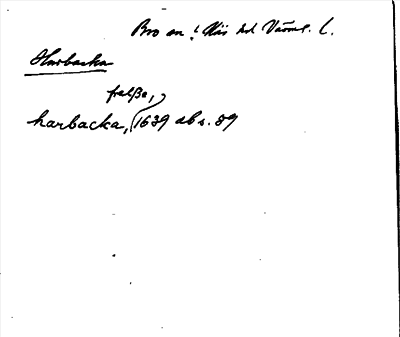 Bro sn. Näs hd Värml. l.
Harbacka
frälße,
harbacka, 1639 ab s. 89